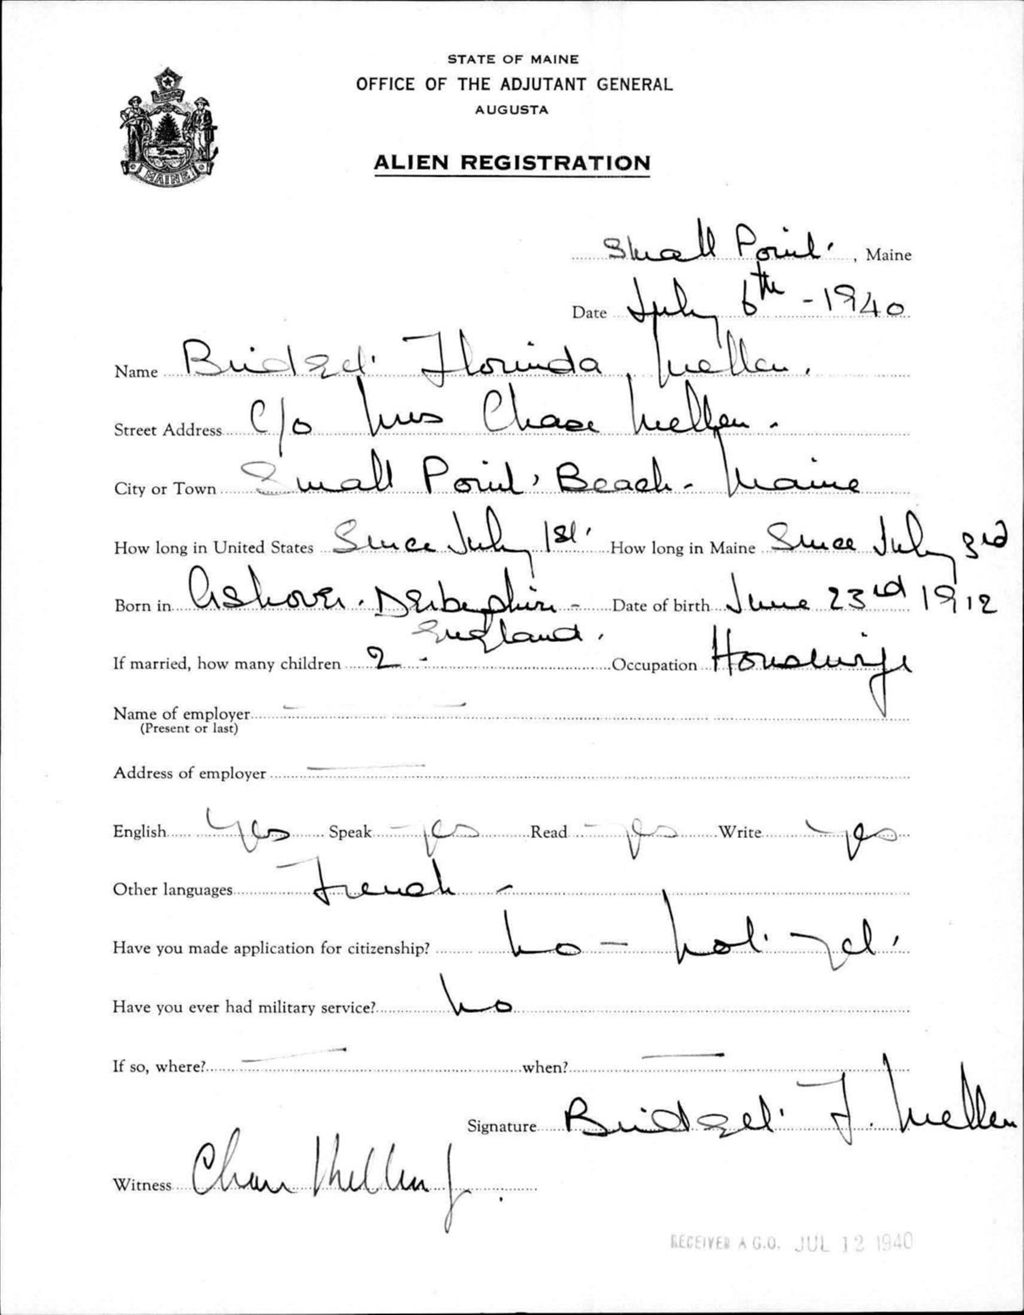 STATE OF MAINE
OFFICE OF THE ADJUTANT GENERAL
AUGUSTA
ALIEN REGISTRATION
MAINE
Small Point, Maine
Date July 6th - 1940
Name Bridget Florinda Mellen.
Street Address c/o Mrs Chase Mellen.
City or Town Small Point, Beach - Maine
How long in United States Since July 1st. How long in Maine Since July 3rd
Born in Ashover. Derbyshire - Date of birth June 23rd 1912
England.
If married, how many children 2 - Occupation Housewife
Name of employer
(Present or last)
Address of employer
English Yes Speak - yes Read - yes Write - yes
Other languages French -
Have you made application for citizenship? No - not yet.
Have you ever had military service? No
If so, where? when?
Signature Bridget F. Mellen
Witness Chase Mellen Jr.
RECEIVED A.G.O. JUL 12 1940